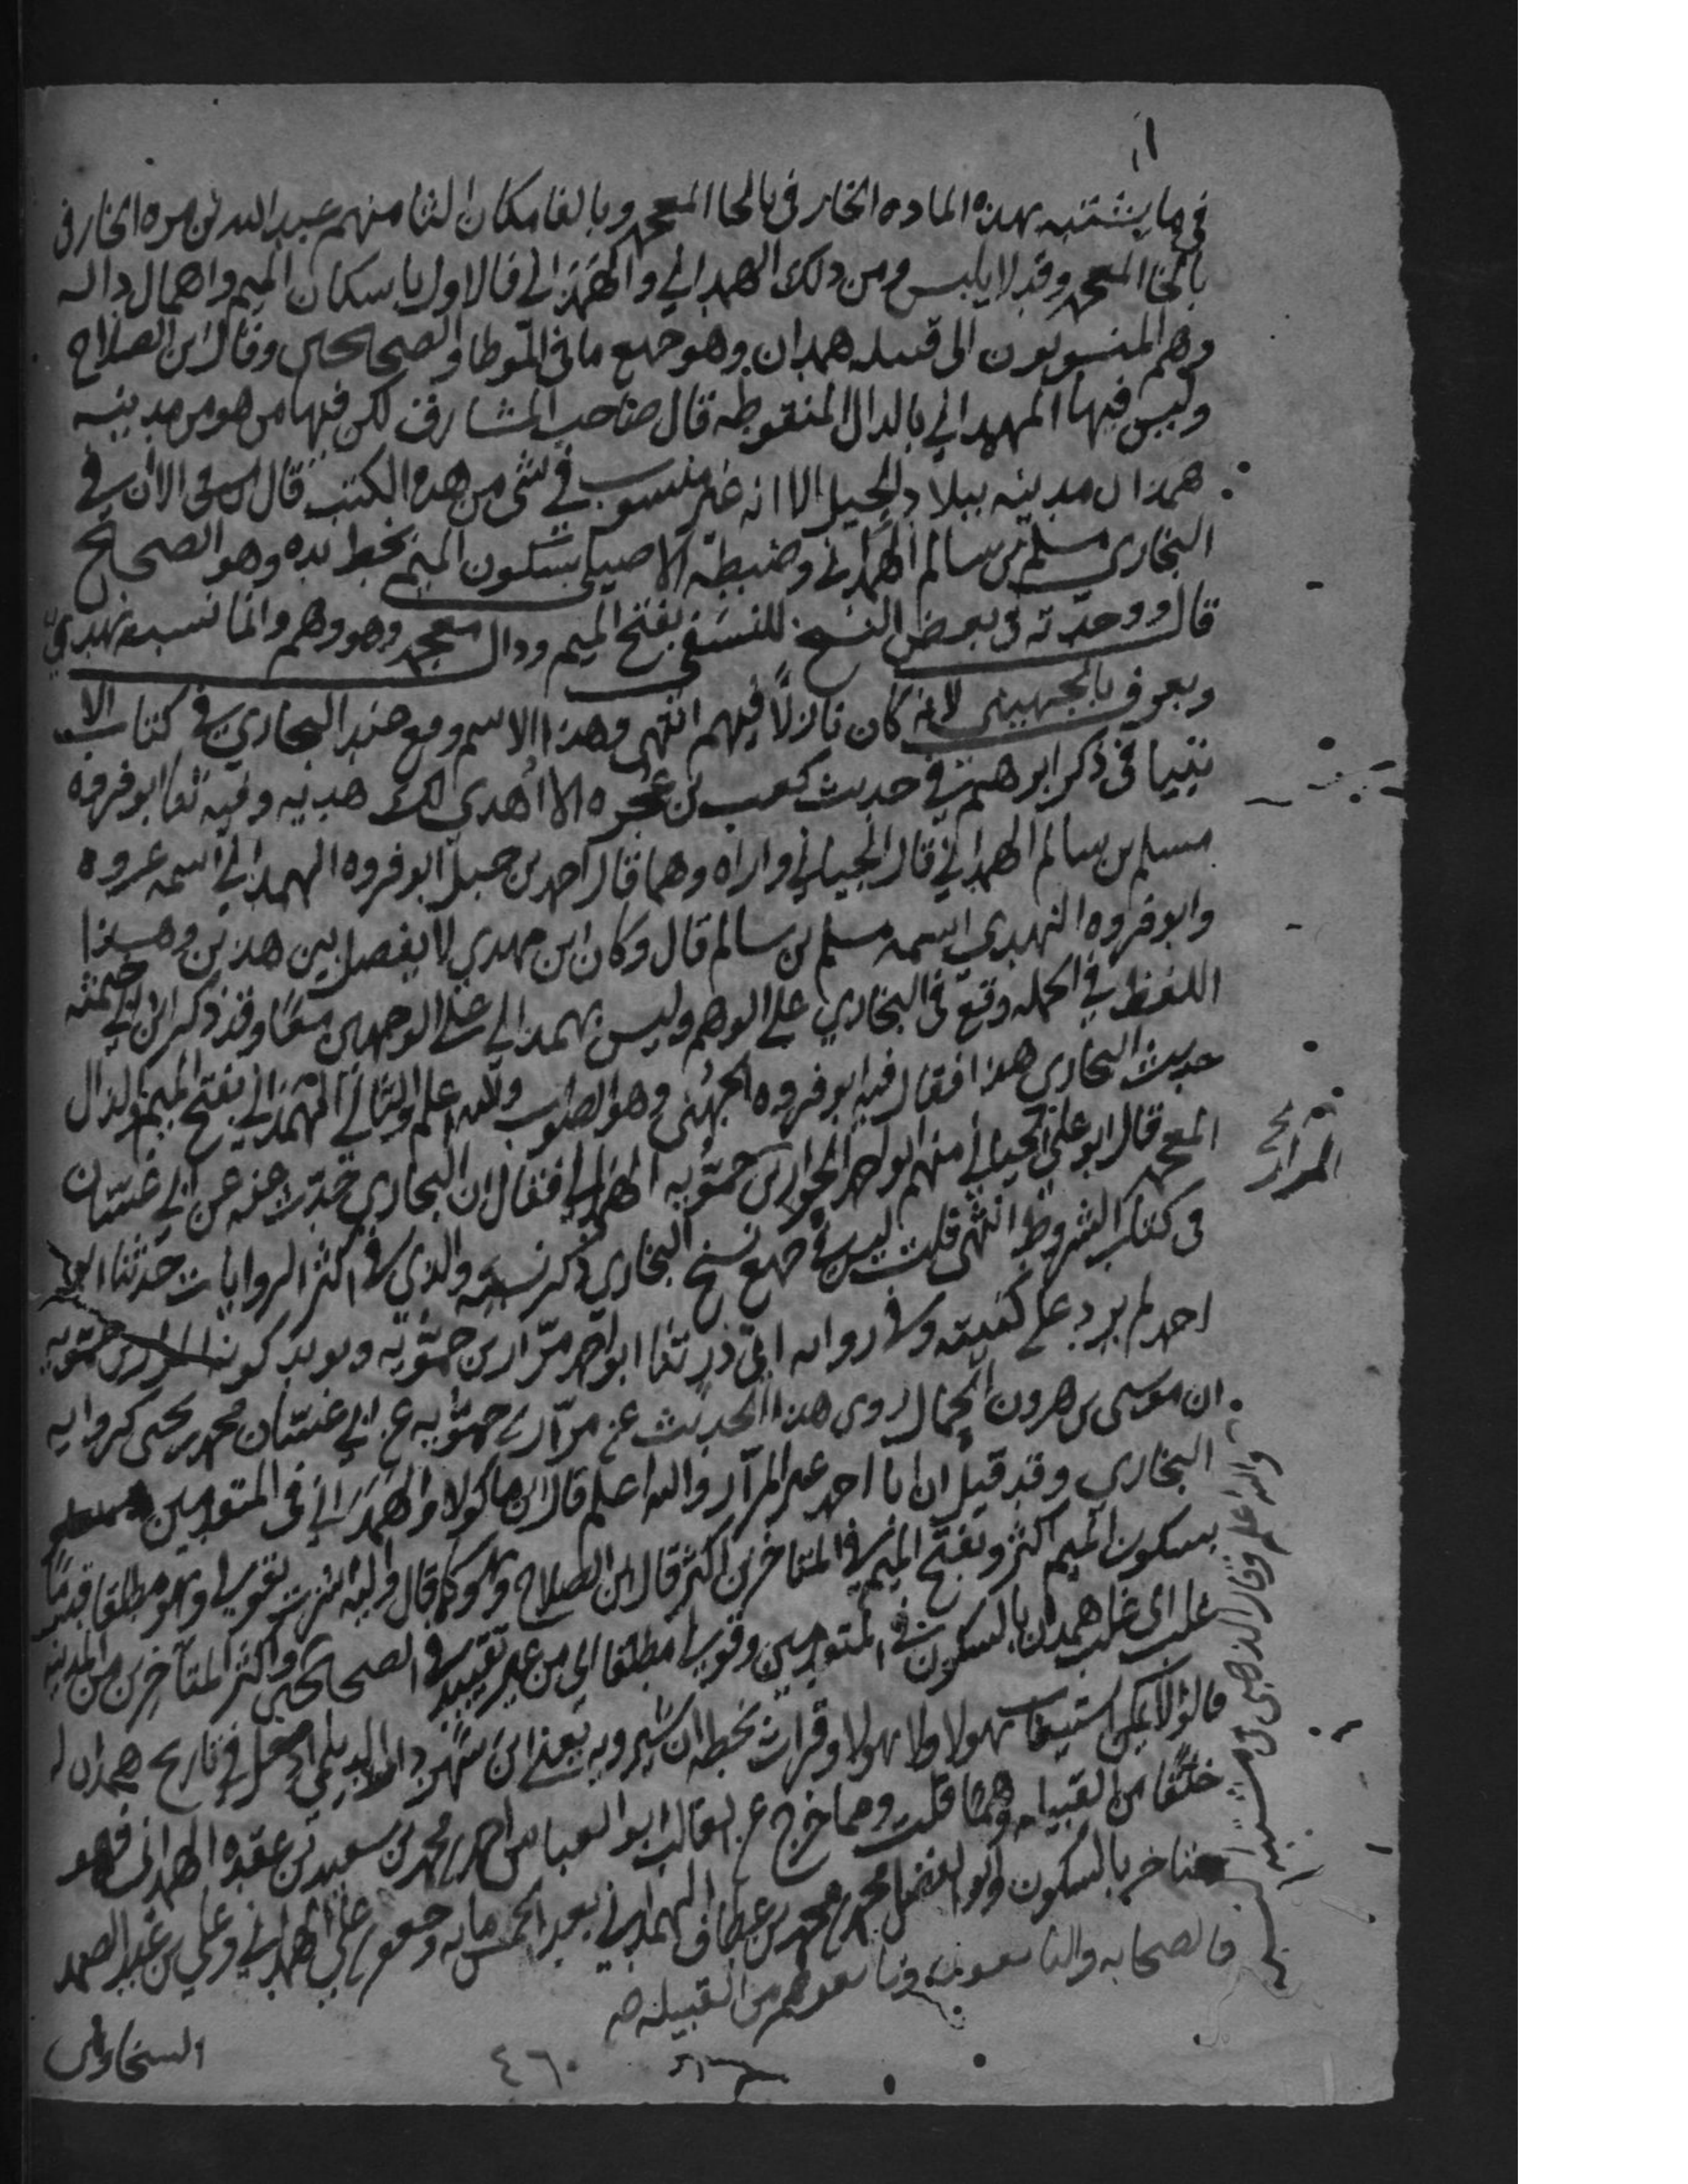 في ما يشتبه بهذه الماده الخارفي بالخا المعجمه وبالفا مكان الثا منهم عبد الله بن مره الخارفي
بالخا المعجمه وقد لا يلبس ومن ذلك الهمداني والهمَذاني فالاول باسكان الميم واهمال داله
وهم المنسوبون الى قبيله همدان وهو جميع ما في الموطا والصحيحين وقال ابن الصلاح
وليس فيها الهمذاني بالذال المنقوطه قال صاحب المشارق لكن فيها من هو من مدينه
همذان مدينه ببلاد الجبل الا انه غير منسوب في شي من هذه الكتب قال الا ان في
البخاري مسلم بن سالم الهمداني وضبطه الاصيلي بسكون الميم بخط يده وهو الصحيح
قال ووجدته في بعض النسخ للنسفي بفتح الميم وذال معجمه وهو وهم وانما نسبه نهدي
ويعرف بالجهيني لانه كان نازلا فيهم انتهى وهذا الاسم وقع عند البخاري في كتاب الا
نبيا في ذكر ابرهيم في حديث كعب بن عجره الا أهدي لك هديه وفيه ثنا ابو فروه
مسلم بن سالم الهمداني قال الجياني واراه وهما قال احمد بن حنبل ابو فروه الهمداني اسمه عروه
وابو فروه النهدي اسمه مسلم بن سالم قال وكان ابن مهدي لا يفصل بين هذين وهذا
اللفظ في الجمله وقع في البخاري على الوهم وليس بهمداني على الوجهين معا وقد ذكر ابن ابي خيثمه
حديث البخاري هذا فقال فيه ابو فروه الجهني وهو الصواب والله اعلم والثاني الهمَذاني بفتح الميم والذال
المعجمه قال ابو علي الجياني منهم ابو احمد المرار بن حمّويه الهمذاني فقال ان البخاري حدث عنه عن ابي غسان
في كتاب الشروط انتهى قلت ليس في جميع نسخ البخاري ذكر نسبه والذي في اكثر الروايات حدثنا ابو
احمد لم يزد على كنيته وفي روايه ابي ذر ثنا ابو احمد مرّار بن حمّويه ويويد كونه المرار بن حمويه
ان موسى بن هرون الجمال روى هذا الحديث عن مرّار بن حمّويه عن ابي غسان محمد بن يحيى كروايه
البخاري وقد قيل ان ابا احمد غير المرّار والله اعلم قال ابن ماكولا والهمداني في المتقدمين
بسكون الميم اكثر وبفتح الميم في المتاخرين اكثر قال ابن الصلاح وهو كما قال
غلب اي غلب همدان بالسكون في المتقدمين وقولي مطلقا اي من غير تقييد في الصحيحين واكثر المتاخرين من المدينه
قالوا لا يمكن استيعاب هولا ولا هولا وقرات بخطه ان شيرويه يعني ابن شهردار الديلمي في تاريخ همذان
خلقا من القبيله قلت ومما خرج عن الغالب ابو العباس احمد بن محمد بن سعيد بن عقده الهمداني فهو
متاخر بالسكون وابو الفضل محمد بن محمد بن عطاف الهمداني بعد الخمس مايه وجعفر بن علي الهمداني وعلي بن عبد الصمد
السخاوي
فالصحابه والتابعون وتابعوهم من القبيله صح
والله اعلم وقال الذهبي في مشتبه
المرار
٤٦٠